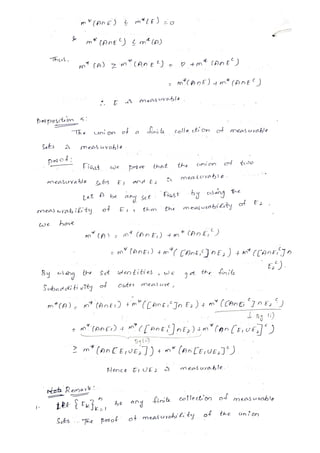 m*(A∩E) ≤ m*(E) = 0
& m*(A∩E^c) ≤ m*(A)
Thus, m*(A) ≥ m*(A∩E^c) = 0 + m*(A∩E^c)
= m*(A∩E) + m*(A∩E^c)
∴ E is measurable.
Proposition 5:
The union of a finite collection of measurable
Sets is measurable.
proof:
First we prove that the union of two
measurable sets E1 and E2 is measurable.
Let A be any set. First by using the
measurability of E1, then the measurability of E2,
we have
m*(A) = m*(A∩E1) + m*(A∩E1^c)
= m*(A∩E1) + m*([A∩E1^c]∩E2) + m*([A∩E1^c]∩
E2^c).
By using the set identities, we get the finite
Subadditivity of outer measure,
m*(A) = m*(A∩E1) + m*([A∩E1^c]∩E2) + m*([A∩E1^c]∩E2^c)
↓ By (i)
= m*(A∩E1) + m*([A∩E1^c]∩E2) + m*(A∩[E1∪E2]^c)
≥ m*(A∩[E1∪E2]) + m*(A∩[E1∪E2]^c).
Hence E1∪E2 is measurable.
Remark:
1. Let {Ek}^n k=1 be any finite collection of measurable
Sets. The proof of measurability of the union